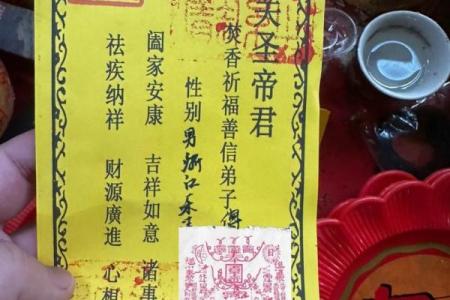 天圣帝君
焚香祈福善信弟子
性别男浙江
阖家安康 吉祥如意 诸事
祛疾纳祥 财源廣進 心相